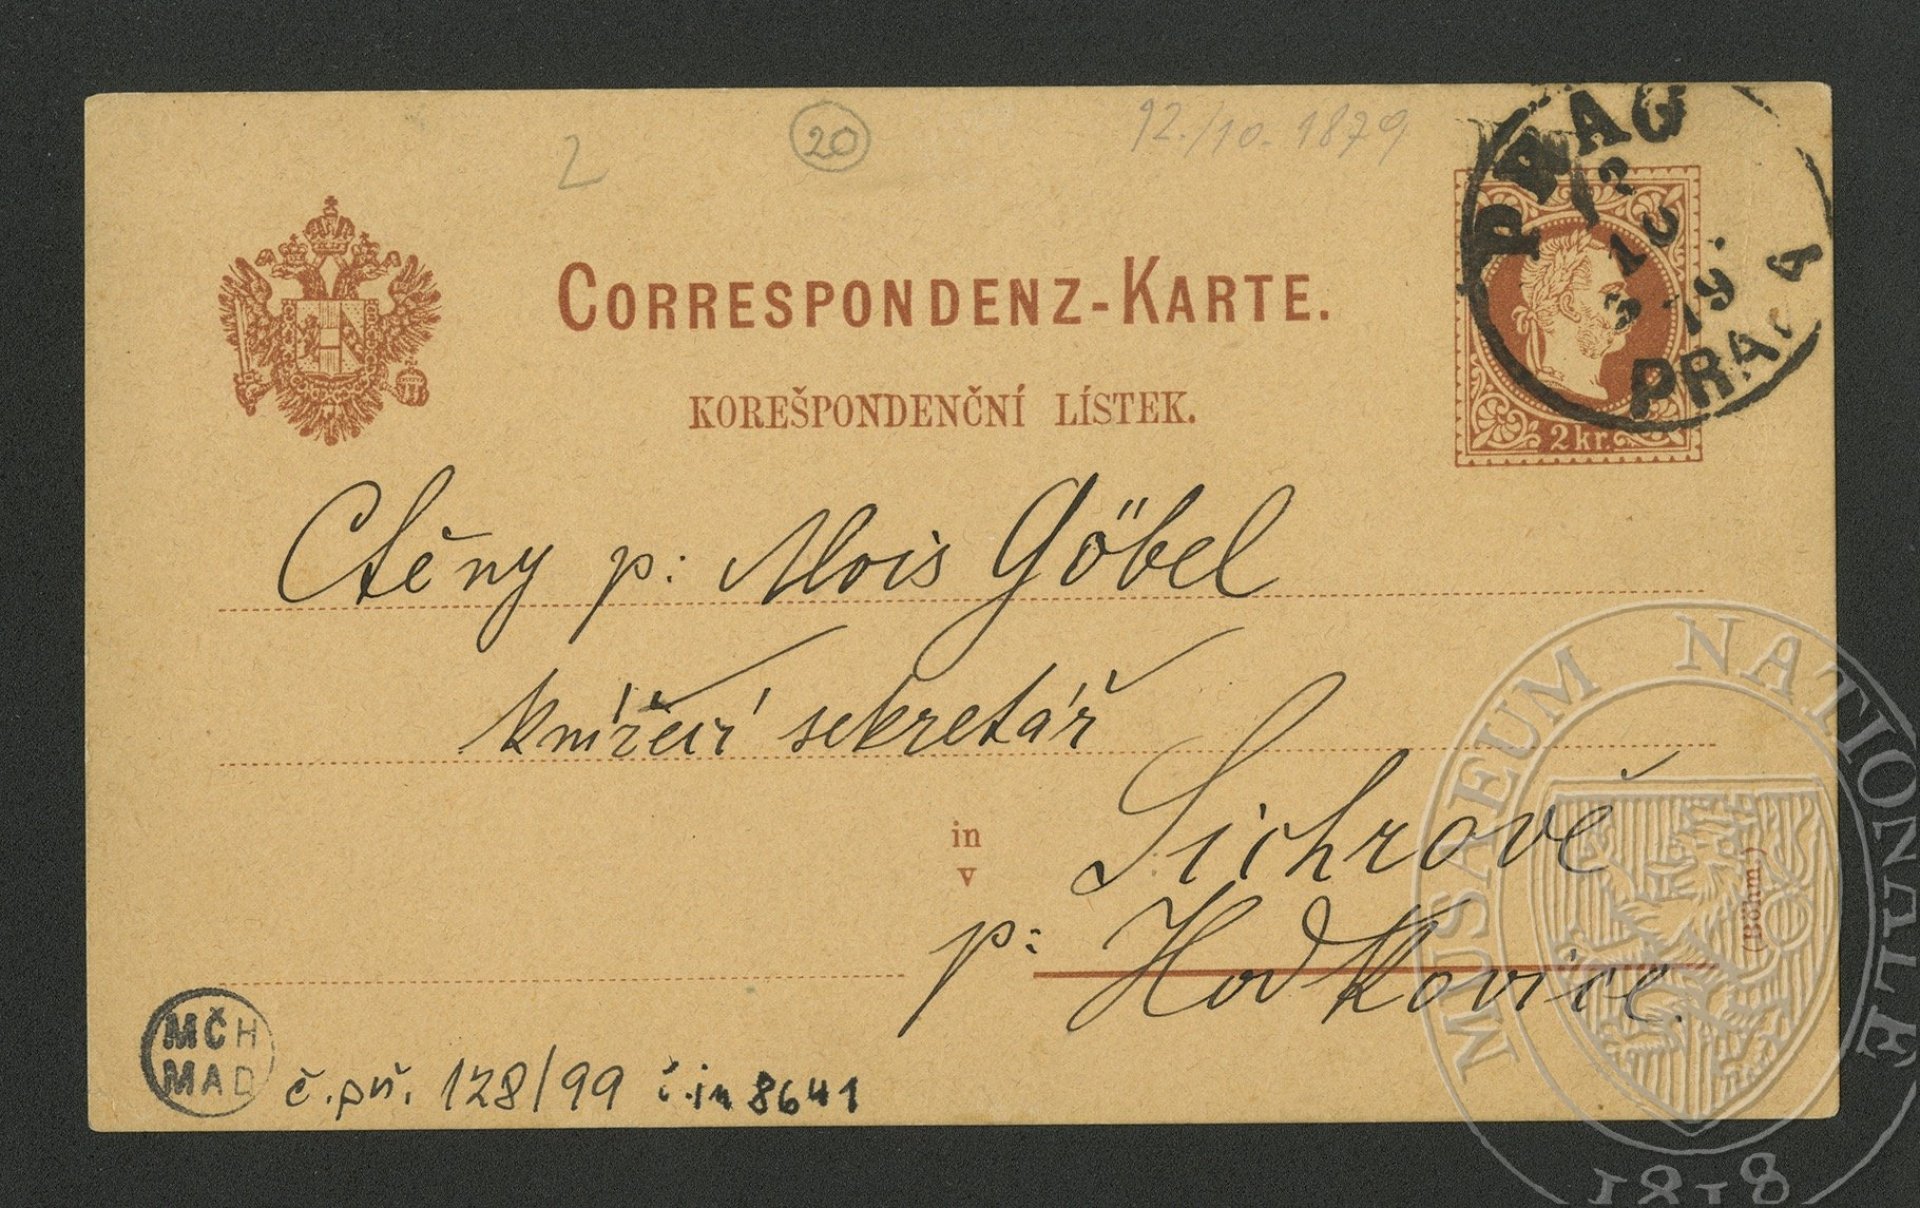 2
20
12./10. 1879
PRAG
12
10
3 79.
PRAGA
CORRESPONDENZ-KARTE.
KOREŠPONDENČNÍ LÍSTEK.
2 kr.
Ctěny p: Alois Göbel
knížecí sekretář
in
v
Sichrově
p: Hodkovice
(Böhm.)
MČH
MAD
č.př. 128/99 č.in 8641
MUSAEUM NATIONALE
1818